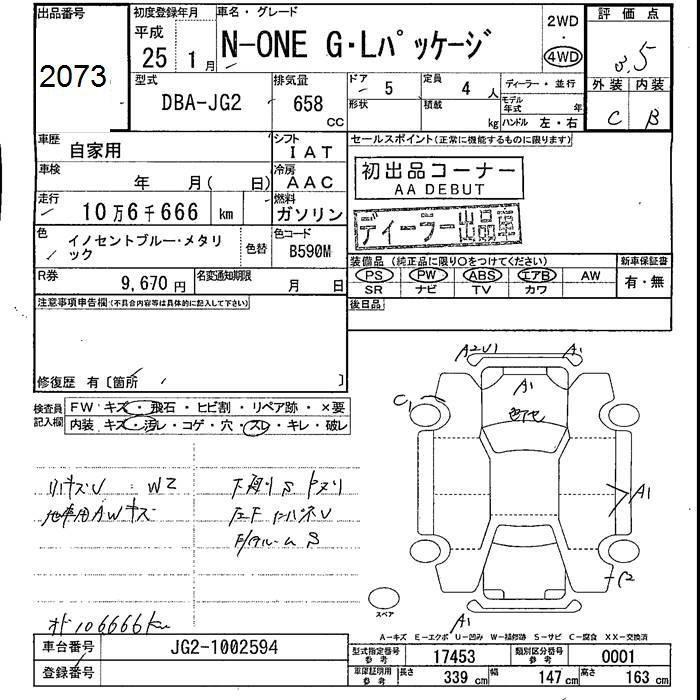 出品番号
2073
初度登録年月
平成
25 1 月
車名・グレード
N-ONE G・Lパッケージ
2WD
・
4WD
評価点
3.5
外装 内装
C B
型式
DBA-JG2
排気量
658
CC
ドア 5
定員 4 人
ディーラー・並行
形状
積載 kg
モデル年式 年
ハンドル 左・右
車歴
自家用
シフト
IAT
車検
年 月( 日)
冷房
AAC
走行
10万6千666 km
燃料
ガソリン
色
イノセントブルー・メタリック
色替
色コード
B590M
R券
9,670 円
名変通知期限
月 日
セールスポイント(正常に機能するものに限ります)
初出品コーナー
AA DEBUT
ディーラー出品車
装備品(純正品に限り○をつけてください)
新車保証書
PS PW ABS エアB AW
SR ナビ TV カワ
有・無
後日品
注意事項申告欄(不具合内容等は具体的に記入して下さい)
修復歴 有〔箇所 〕
検査員
記入欄
FW キズ・飛石・ヒビ割・リペア跡・×要
内装 キズ・汚レ・コゲ・穴・スレ・キレ・破レ
リキズU W2
地車用AWキズ
下廻りS
S
オド106666km
A2U1
A1
A1
色アセ
C1
A1
C2
A1
スペア
A-キズ E-エクボ U-凹み W-補修跡 S-サビ C-腐食 XX-交換済
車台番号
JG2-1002594
登録番号
型式指定番号
参考
17453
類別区分番号
参考
0001
車庫証明用
参考
長さ 339 cm
幅 147 cm
高さ 163 cm